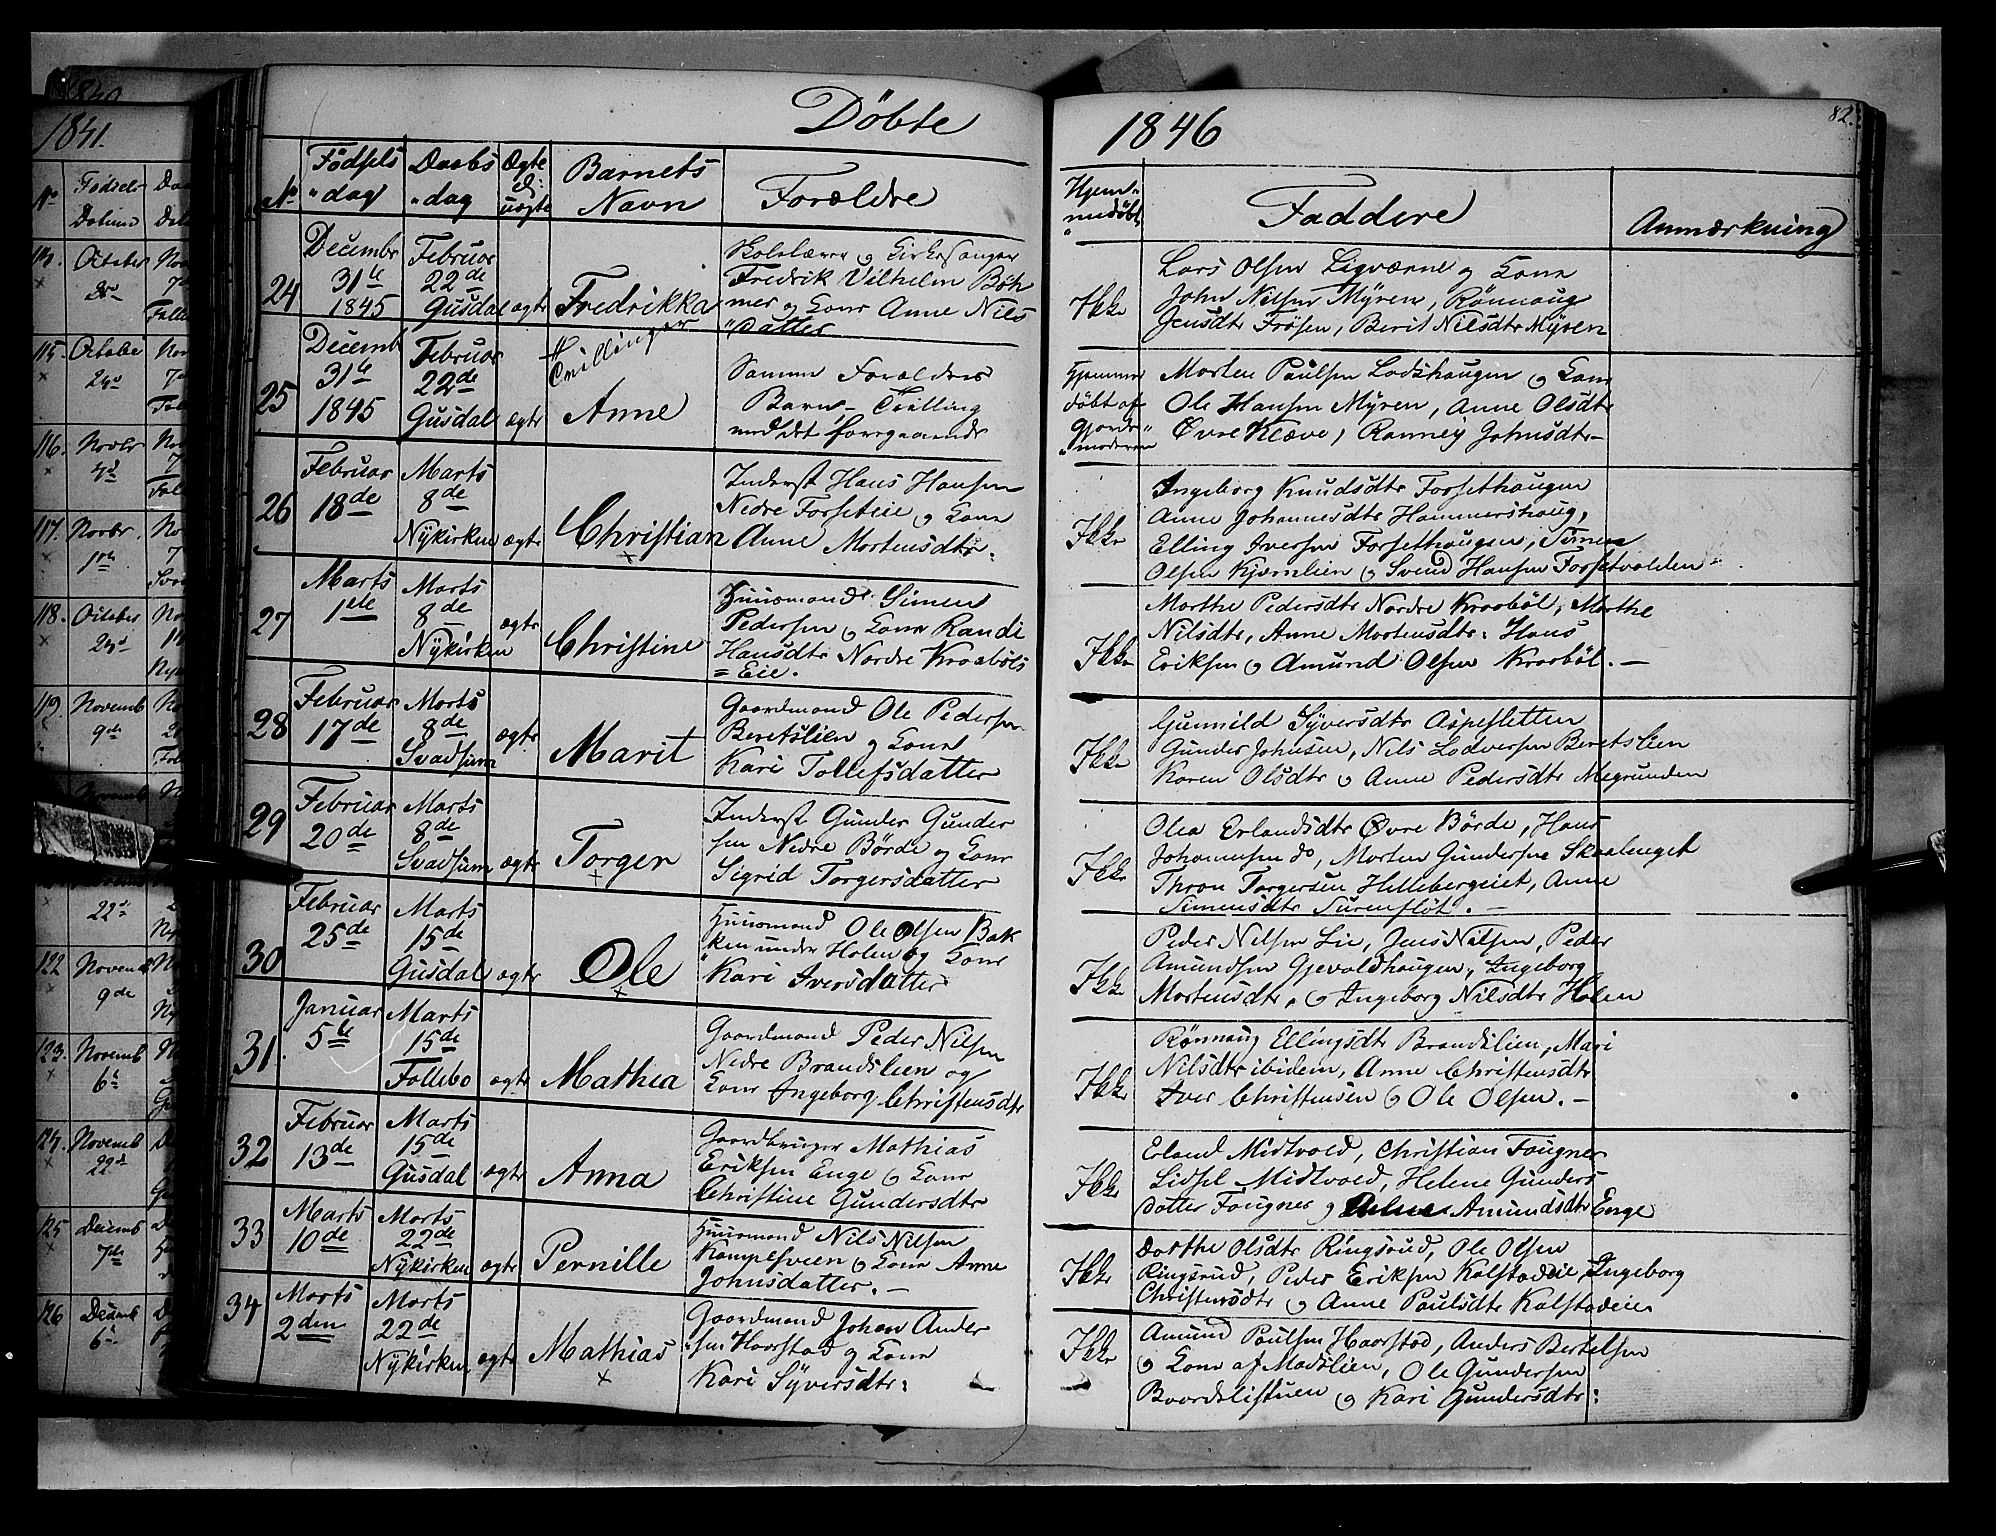 Döbte
1846
82.
No
Födsels
"dag
Daabs
"dag
Ægte
el:
uægte
Barnets
Navn
Forældre
Hjem-
medöbt
Faddere
Anmærkning
24
Decembr
31te
1845
Februar
22de
Gusdal
ægte
Fredrikka
Tvillinger
Skolelærer og Kirkesanger
Fredrik Vilhelm Böh
mer og Kone Anne Nils
"datter
Ikke
Lars Olsen Ligværne og Kone
John Nilsen Myren, Rönnaug
Jensdtr Frösen, Berit Nilsdtr Myren
25
Decemb
31te
1845
Februar
22de
Gusdal
ægte
Anne
Samme Forældres
Barn - Tvilling
med det foregaaende
Hjemme
döbt af
Gjorde"
"moderen
Morten Paulsen Ladshaugen og Kone
Ole Hansen Myren, Anne Olsdtr
Övre Klæve, Ranneÿ Johnsdtr-
26
Februar
18de
Marts
8de
Nykirken
ægte
Christian
Inderst Hans Hansen
Nedre Forseteie og Kone
Anne Mortensdtr.
Ikke
Ingeborg Knudsdtr Forsethaugen
Anne Johannesdtr Hammershaug,
Elling Iversen Forsethaugen, Simen
Olsen Kjærnlien og Svend Hansen Forsetvolden
27
Marts
1ste
Marts
8de
Nykirken
ægte
Christine
Huusmand Simen
Pedersen og Kone Randi
Hansdtr Nordre Kraaböls
=Eie.
Ikke
Marthe Pedersdtr Nordre Kraaböl, Marthe
Nilsdtr, Anne Mortensdtr, Hans
Eriksen og Amund Olsen Kraaböl. -
28
Februar
17de
Marts
8de
Svadsum
ægte
Marit
Gaardmand Ole Pedersen
Beretslien og Kone
Kari Tollefsdatter
Ikke
Gunnild Syversdtr Aspesletten
Gunder Johnsen, Nils Lodversen Beretslien
Karen Olsdtr og Anne Pedersdtr Megrunden
29
Februar
20de
Marts
8de
Svadsum
ægte
Torger
Inderst Gunder Gunder
sen Nedre Börde og Kone
Sigrid Torgersdatter
Ikke
Olea Erlandsdtr Övre Börde, Hans
Johannesen do, Morten Gundersen Skaalneget
Thron Torgersen Hillebergeiet, Anne
Simensdtr Surenflöt. -
30
Februar
25de
Marts
15de
Gusdal
ægte
Ole
Huusmand Ole Olsen Bak
"ken under Holen og Kone
Kari Iversdatter
Ikke
Peder Nilsen Lie, Jens Nilsen, Peder
Amundsen Gjevaldhaugen, Ingeborg
Mortensdtr, og Ingeborg Nilsdtr Holen
31
Januar
5te
Marts
15de
Follebo
ægte
Mathea
Gaardmand Peder Nilsen
Nedre Brandslien og
Kone Ingeborg Christensdtr
Ikke
Rönnaug Ellingsdtr Brandslien, Mari
Nilsdtr ibidem, Anne Christensdtr
Iver Christensen og Ole Olsen. -
32
Februar
13de
Marts
15de
Gusdal
ægte
Anna
Gaardbruger Mathias
Eriksen Enge og Kone
Christine Gundersdtr
Ikke
Erland Midtvold, Christian Fougner
Lidsel Midtvold, Helene Gunders
datter Fougner og Amundsdtr Enge
33
Marts
10de
Marts
22de
Nykirken
ægte
Pernille
Huusmand Nils Nilsen
Kampesveen og Kone Anne
Johnsdatter. -
Ikke
Dorthe Olsdtr Ringsrud, Ole Olsen
Ringsrud, Peder Eriksen Kalstadeie, Ingeborg
Christensdtr og Anne Paulsdtr Kalstadeie
34
Marts
2den
Marts
22de
Nykirken
ægte
Mathias
Gaardmand Johan Ander
"sen Haarstad og Kone
Kari Syversdtr:
Ikke
Amund Paulsen Haarstad, Anders Bertelsen
og Kone af Madslien, Ole Gundersen
Baardslistuen og Kari Gundersdtr:
1840
1841.
No
Fødsels-
Datum
115.
October
24de
116.
Novbr
117.
Novbr.
1ste
118.
October
119.
Novemb
9de
22de
122
Novemb
9de
123.
Novemb
6te
124.
Novemb
22de
125
Decemb
7de
126
Decemb
6te